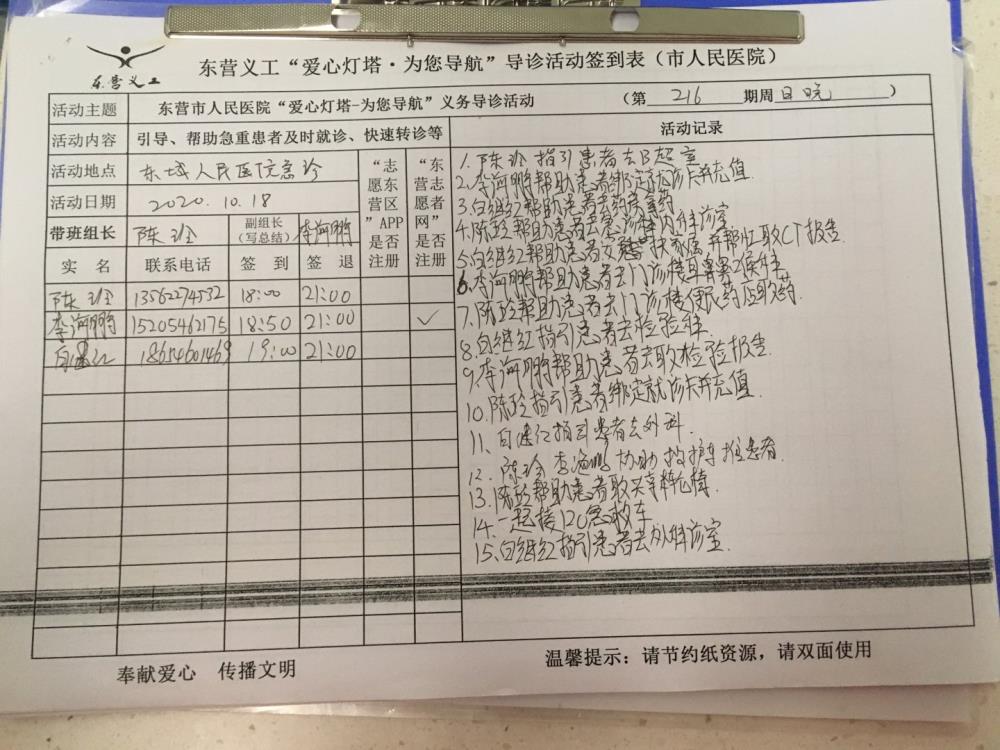 东营义工
东营义工“爱心灯塔·为您导航”导诊活动签到表（市人民医院）
活动主题 东营市人民医院“爱心灯塔-为您导航”义务导诊活动 （第 216 期周 日晚 ）
活动内容 引导、帮助急重患者及时就诊、快速转诊等
活动地点 东城人民医院急诊
活动日期 2020.10.18
带班组长 陈玲 副组长（写总结） 李海鹏
“志愿东营区”APP是否注册
“东营志愿者网”是否注册
实名 联系电话 签到 签退
陈玲 13562274532 18:00 21:00
李海鹏 15205462175 18:50 21:00 ✓
白继红 18654601469 19:00 21:00
活动记录
1. 陈玲指引患者去B超室
2. 李海鹏帮助患者绑定就诊卡并充值.
3. 白继红帮助患者去药房拿药
4. 陈玲帮助患者去急诊楼内科诊室
5. 白继红帮助患者安 并帮忙取CT报告.
6. 李海鹏帮助患者去门诊楼
7. 陈玲帮助患者去门诊楼便民药店取药.
8. 白继红指引患者去检验科.
9. 李海鹏帮助患者去取检验报告.
10. 陈玲指引患者绑定就诊卡并充值.
11. 白继红指引患者去外科.
12. 陈玲 李海鹏协助救护车推患者.
13. 陈玲帮助患者取轮椅.
14. 一起接120急救车
15. 白继红指引患者去外科诊室.
奉献爱心 传播文明
温馨提示：请节约纸资源，请双面使用